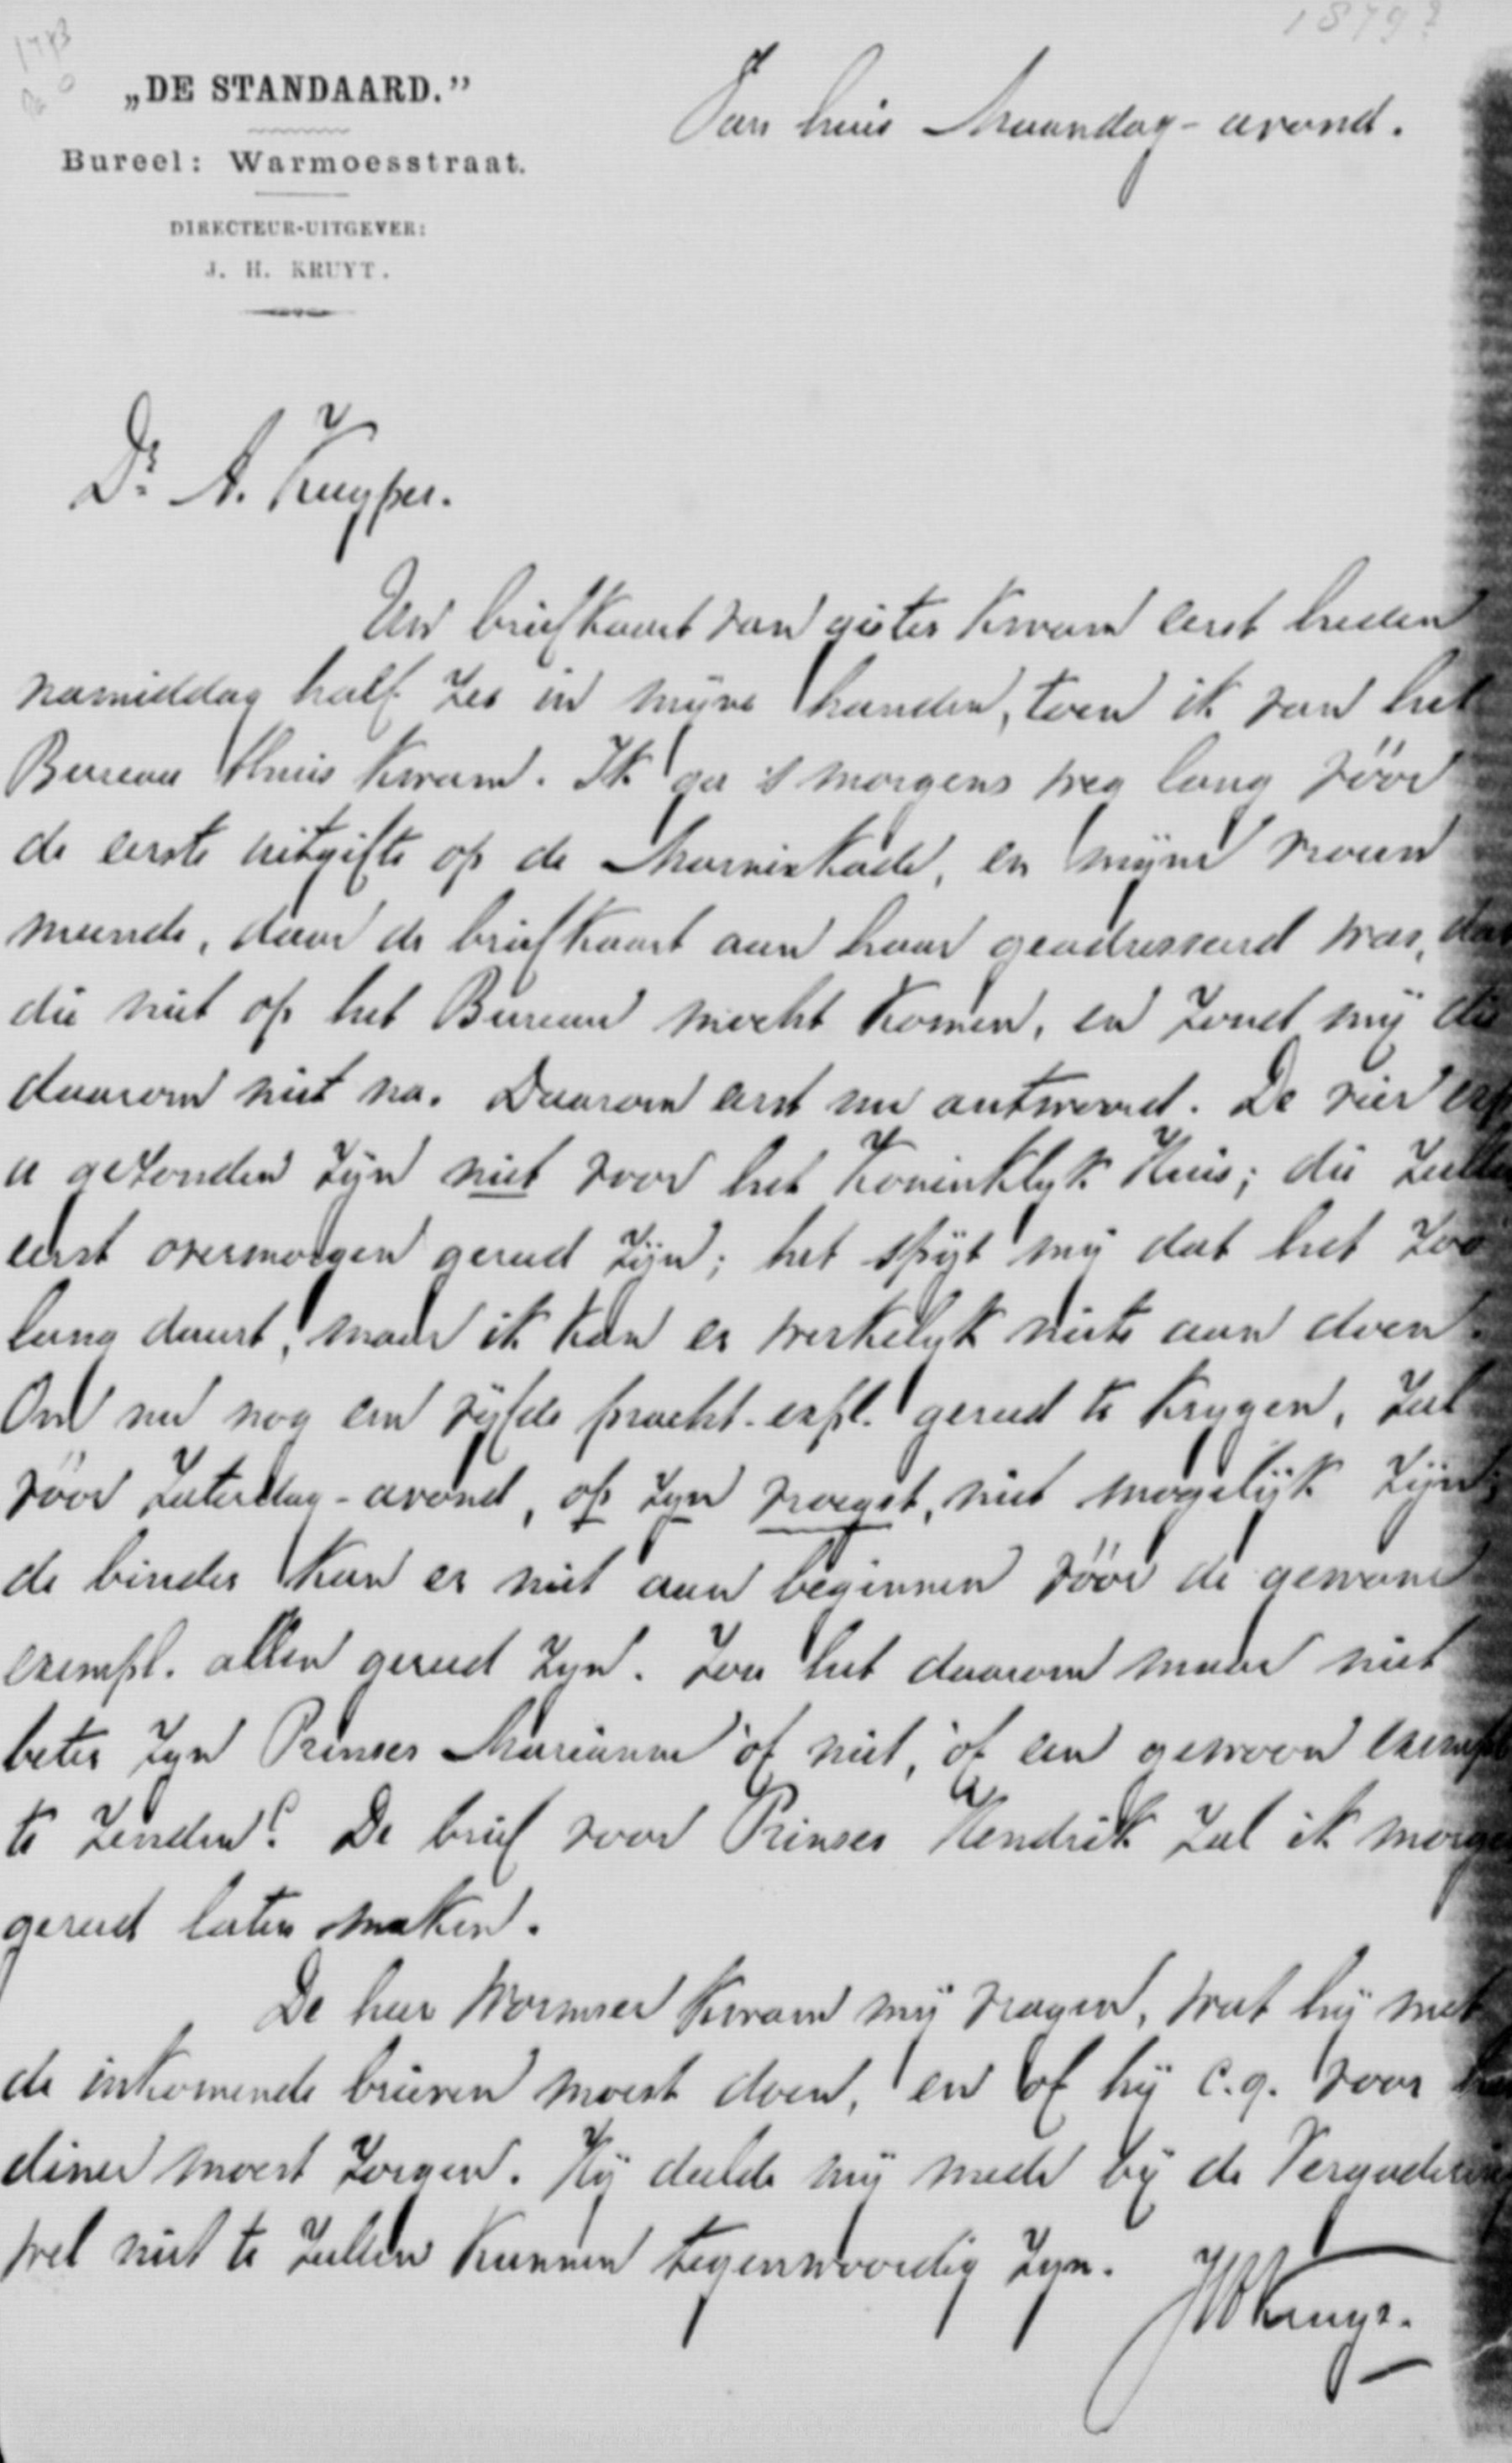 1879?
„DE STANDAARD.”
Bureel: Warmoesstraat.
DIRECTEUR-UITGEVER:
J. H. KRUYT.
Van huis Maandag-avond.
Dr. A. Kuyper.
Uw briefkaart van gister kwam eerst heden
namiddag half zes in mijne handen, toen ik van het
Bureau thuis kwam. Ik ga 's morgens weg lang vóór
de eerste uitgifte op de Marnixkade, en mijne vrouw
meende, daar de briefkaart aan haar geadresseerd was, dat
die niet op het Bureau mocht komen, en zond mij die
daarom niet na. Daarom eerst nu antwoord. De vier
u gezonden zijn niet voor het Koninklyk Huis; die zullen
eerst overmorgen gereed zijn; het spijt mij dat het zoo
lang duurt, maar ik kan er werkelyk niets aan doen.
Om nu nog een vijfde pracht-expl. gereed te krygen, zal
vóór Zaterdag-avond, op zyn vroegst, niet mogelijk zijn;
de binder kan er niet aan beginnen vóór de gewone
exempl. allen gereed zyn. Zou het daarom maar niet
beter zyn Prinses Marianne òf niet, òf een gewoon exempl
te zenden? De brief voor Prinses Hendrik zal ik morgen
gereed laten maken.
De heer Wormser kwam mij vragen, wat hij met
de inkomende brieven moest doen, en of hij c.q. voor
diner moest zorgen. Hij deelde mij mede bij de Vergadering
wel niet te zullen kunnen tegenwoordig zyn.
JHKruyt.